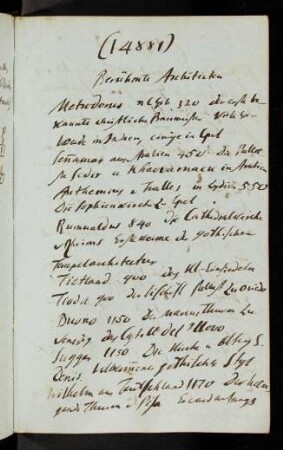 (14881)
Berühmte Architecten
Metrodorus n Cph 320 der erste be
kannte christliche Baumeister viele Ge
bäude in Indien, einige in Cpel
Senamar aus Arabien 450 die Palläs
te Seder u Khaovarnack in Arabien
Anthemius v Tralles in Lydien 550
Die Sophienkirche zu Cpel.
Rumualdus 840 die Cathedralkirche
v Rheims Erste der gothischen
Tempelarchitectur
Tietland 900 das Kl. Einsiedeln
Tioda 900 der Pallast zu Oviedo
Buono 1150 der Marcusthurm zu
Venedig das Castell del Uovo
Sugger 1150 Die Kirche u Abtey S.
Denis. gothischer Styl
Wilhelm aus Deutschland 1170 Der hän
gende Thurm v Pisa